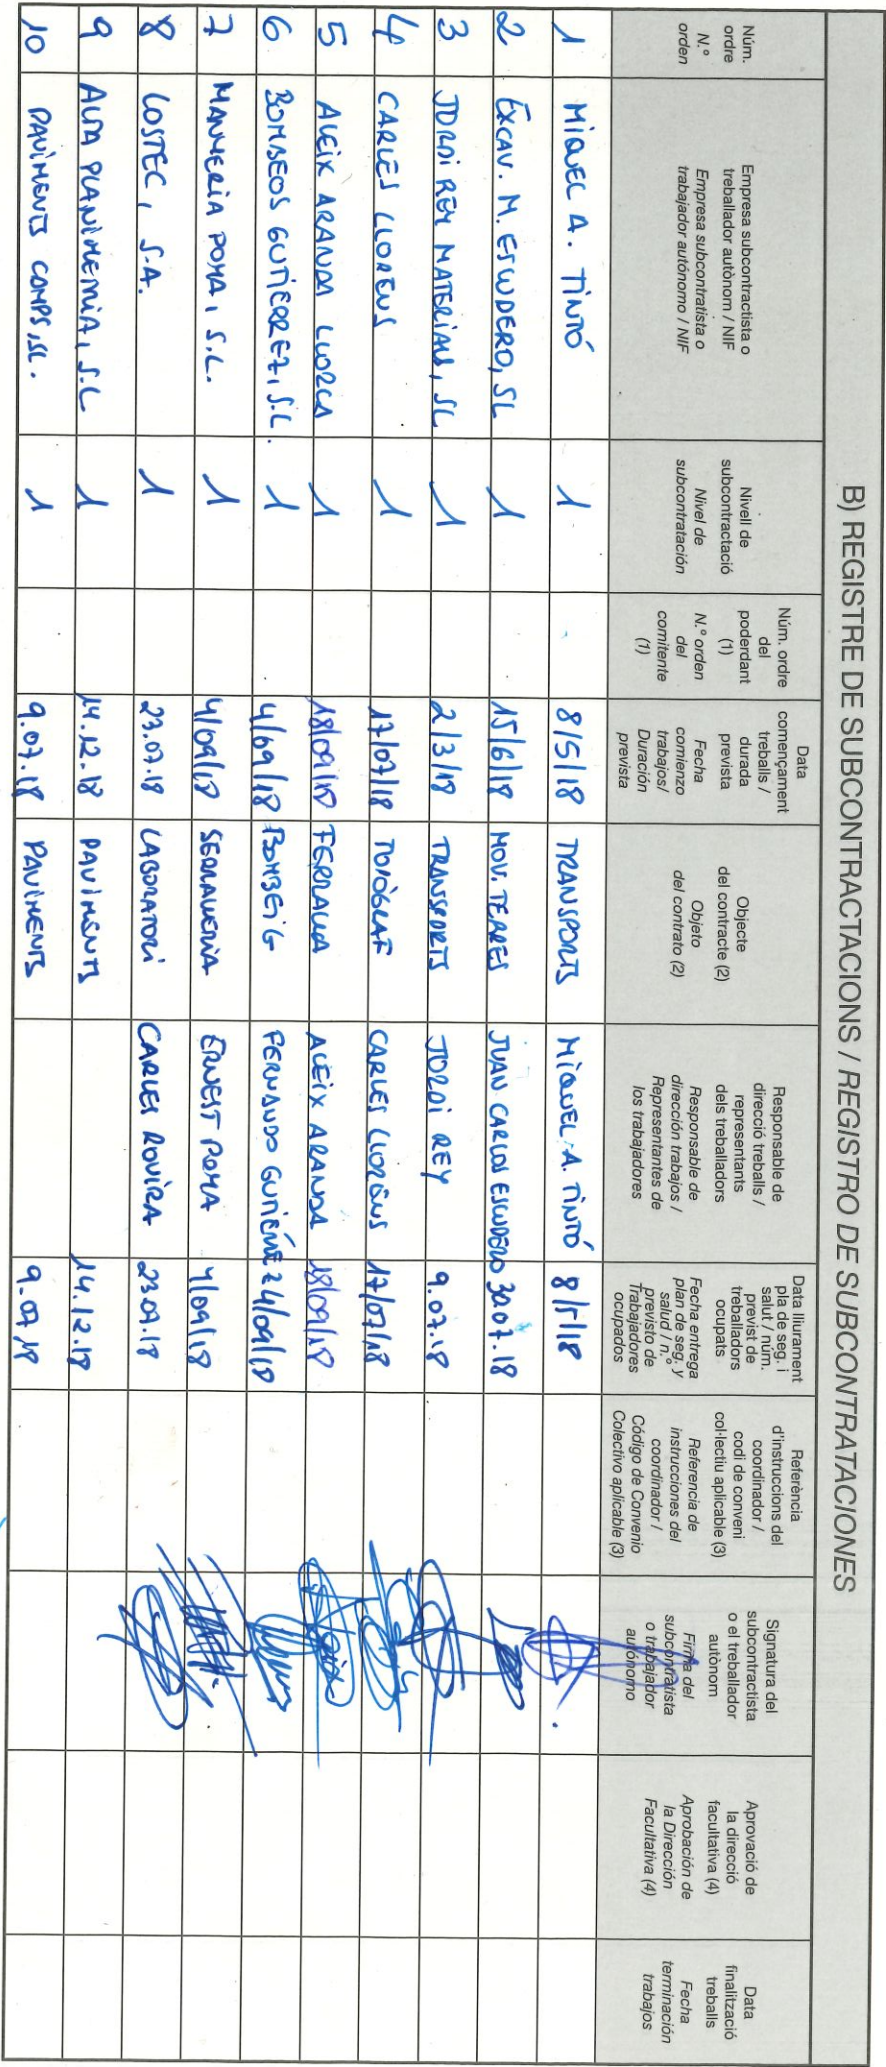 B) REGISTRE DE SUBCONTRACTACIONS / REGISTRO DE SUBCONTRATACIONES
Núm. ordre
N.º orden
Empresa subcontractista o treballador autònom / NIF
Empresa subcontratista o trabajador autónomo / NIF
Nivell de subcontractació
Nivel de subcontratación
Núm. ordre del poderdant (1)
N.º orden del comitente (1)
Data començament treballs / durada prevista
Fecha comienzo trabajos/ Duración prevista
Objecte del contracte (2)
Objeto del contrato (2)
Responsable de direcció treballs / representants dels treballadors
Responsable de dirección trabajos / Representantes de los trabajadores
Data lliurament pla de seg. i salut / núm. previst de treballadors ocupats
Fecha entrega plan de seg. y salud / n.º previsto de Trabajadores ocupados
Referència d'instruccions del coordinador / codi de conveni col·lectiu aplicable (3)
Referencia de instrucciones del coordinador / Código de Convenio Colectivo aplicable (3)
Signatura del subcontractista o el treballador autònom
Firma del subcontratista o trabajador autónomo
Aprovació de la direcció facultativa (4)
Aprobación de la Dirección Facultativa (4)
Data finalització treballs
Fecha terminación trabajos
1 MIQUEL A. TINTÓ 1 8/5/18 TRANSPORTS MIQUEL A. TINTÓ 8/5/18
2 EXCAV. M. ESCUDERO, SL 1 15/6/18 MOV. TERRES JUAN CARLOS ESCUDERO 30.07.18
3 JORDI REY MATERIALS, SL 1 2/3/18 TRANSPORTS JORDI REY 9.07.18
4 CARLES LLORENS 1 17/07/18 TOPÒGRAF CARLES LLORENS 17/07/18
5 ALEIX ARANDA LLORCA 1 18/09/18 FERRALLA ALEIX ARANDA 18/09/18
6 BOMBEOS GUTIERREZ, S.L. 1 4/09/18 BOMBEIG FERNANDO GUTIÉRREZ 4/09/18
7 MANYERIA POMA, S.L. 1 4/09/18 SERRALLERIA ERNEST POMA 4/09/18
8 LOSTEC, S.A. 1 23.07.18 LABORATORI CARLES ROVIRA 23.07.18
9 ALTA PLANIMETRIA, S.L 1 14.12.18 PAVIMENTS 14.12.18
10 PAVIMENTS COMPS, SL. 1 9.07.18 PAVIMENTS 9.07.18